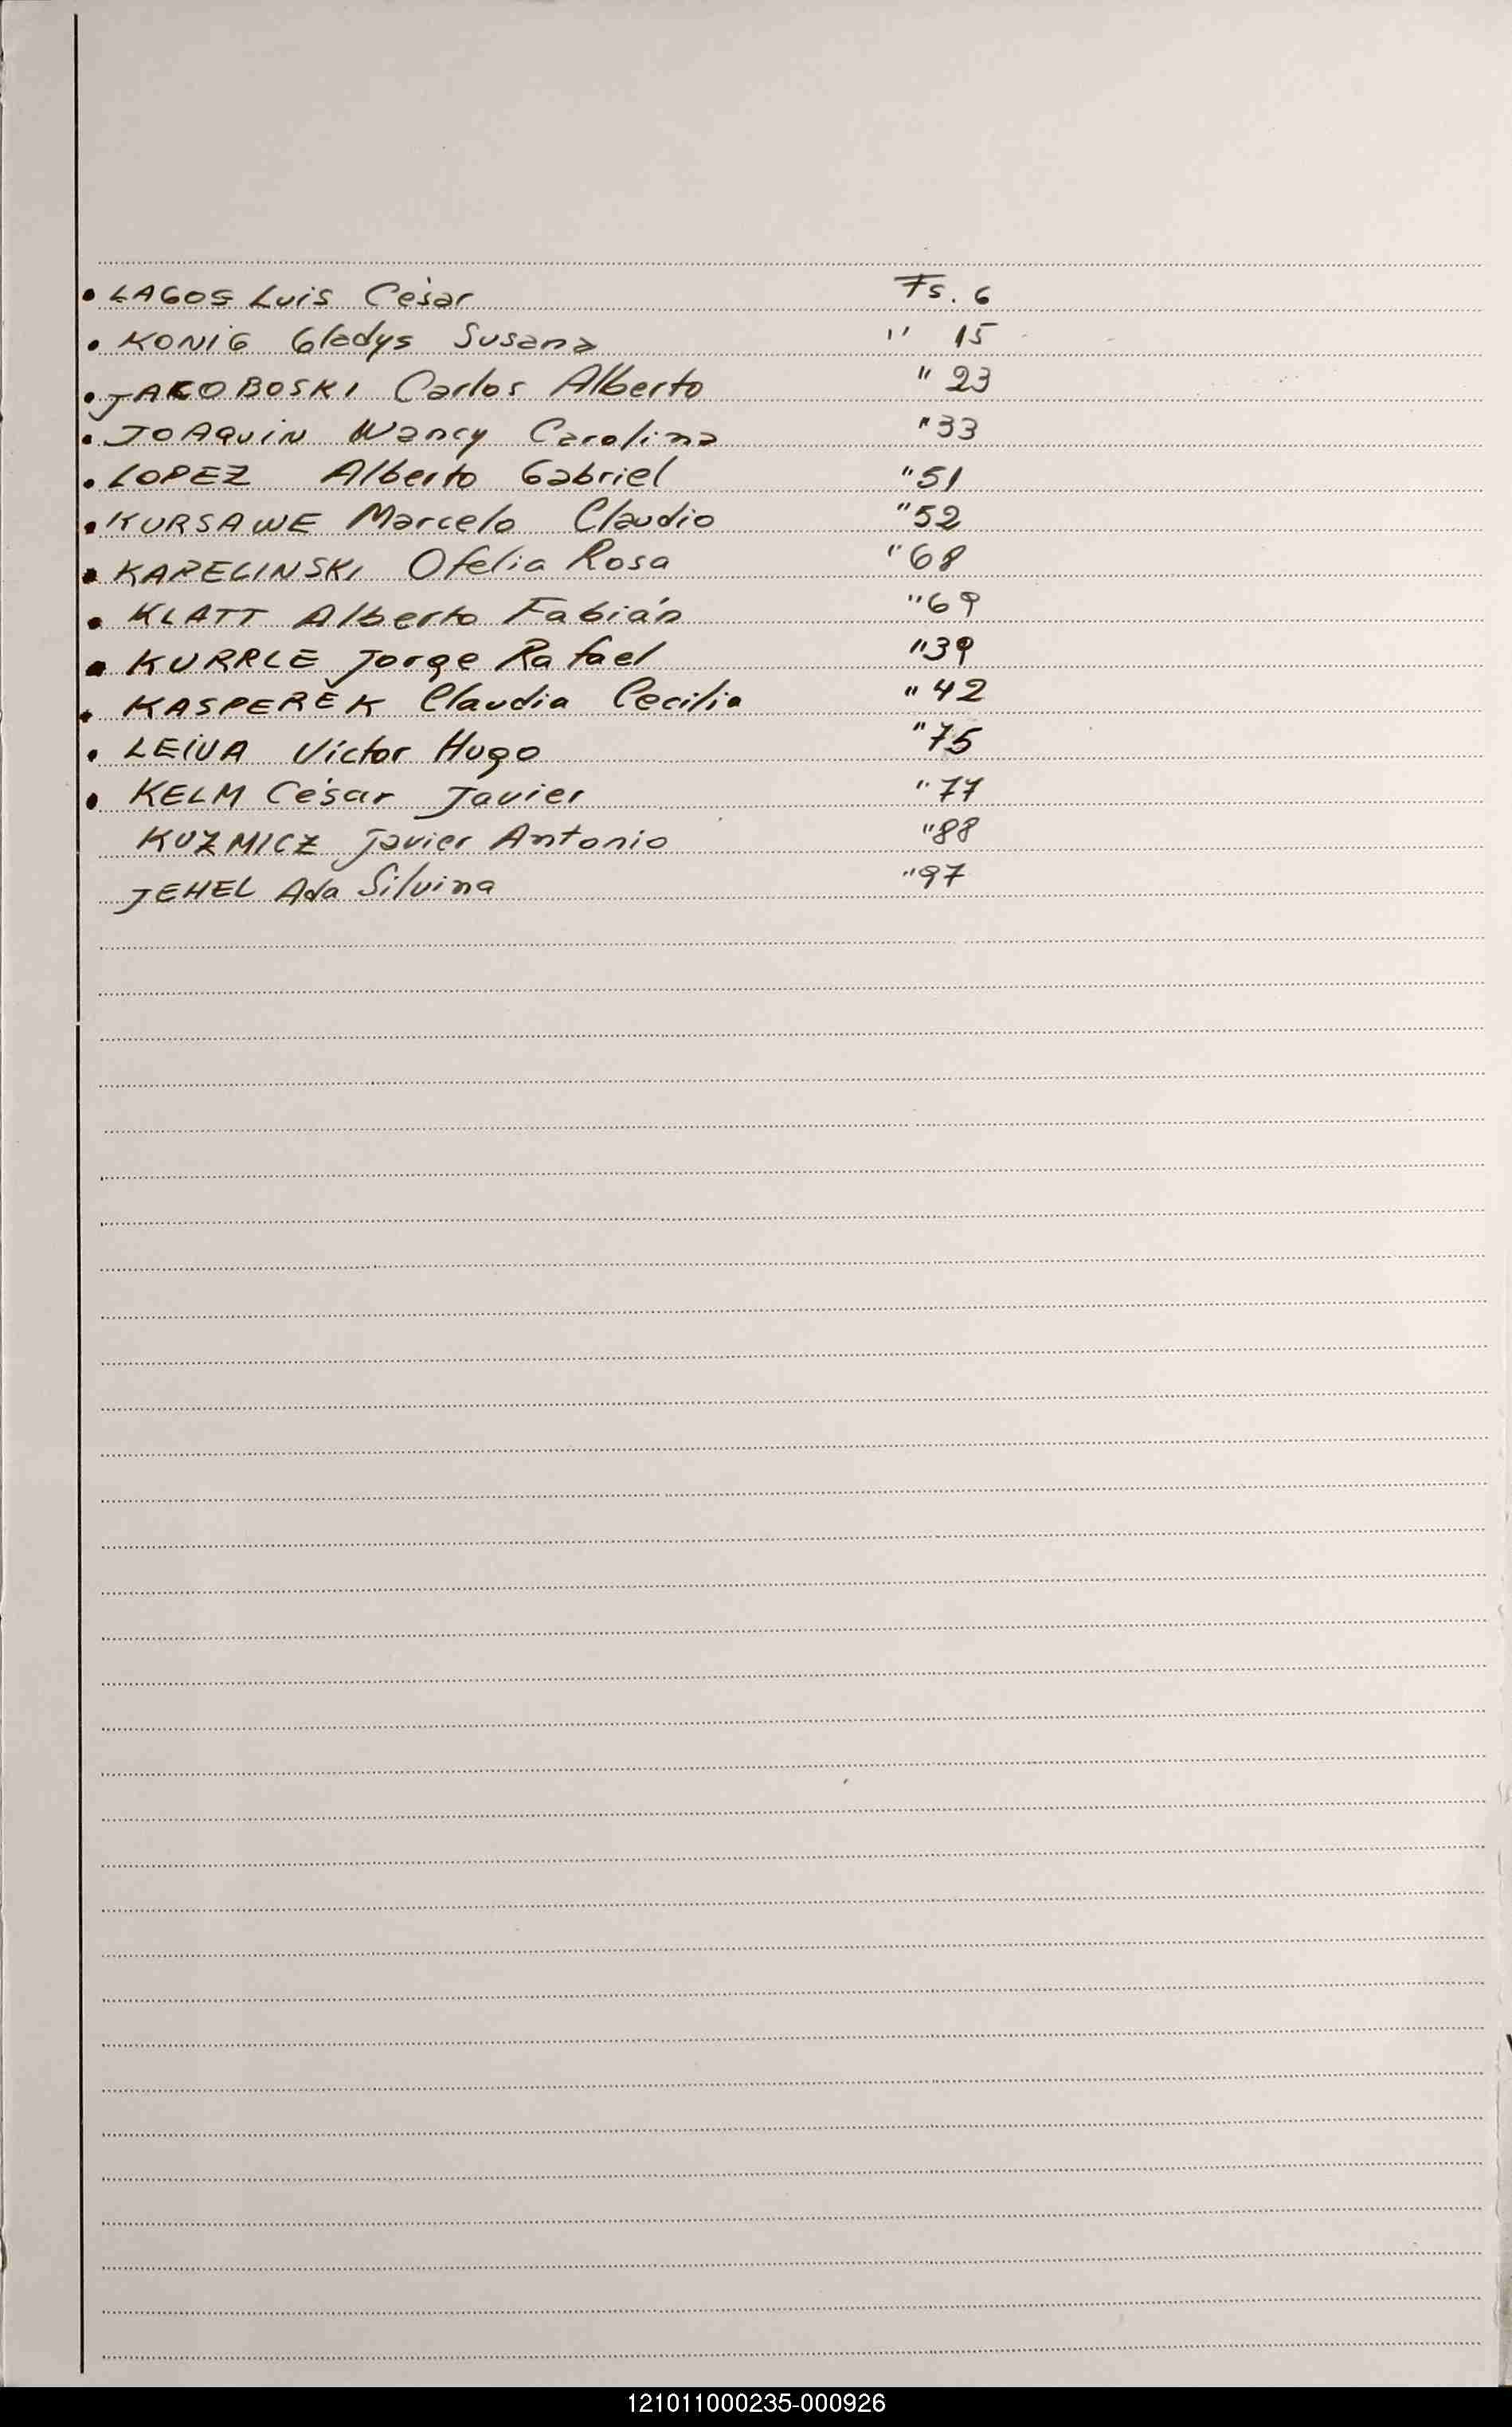 • LAGOS Luis César Fs. 6
• KONIG Gladys Susana " 15
• JACOBOSKI Carlos Alberto " 23
• JOAQUIN Nancy Carolina " 33
• LOPEZ Alberto Gabriel " 51
• KURSAWE Marcelo Claudio " 52
• KAPELINSKI Ofelia Rosa " 68
• KLATT Alberto Fabián " 69
• KURRLE Jorge Rafael " 39
• KASPEREK Claudia Cecilia " 42
• LEIVA Víctor Hugo " 75
• KELM César Javier " 77
KUZMICZ Javier Antonio " 88
JEHEL Ada Silvina " 97
121011000235-000926